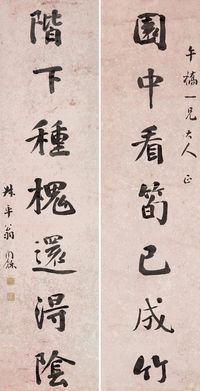 午橋一兄大人正
園中看筍已成竹
階下種槐還得陰
叔平翁同龢